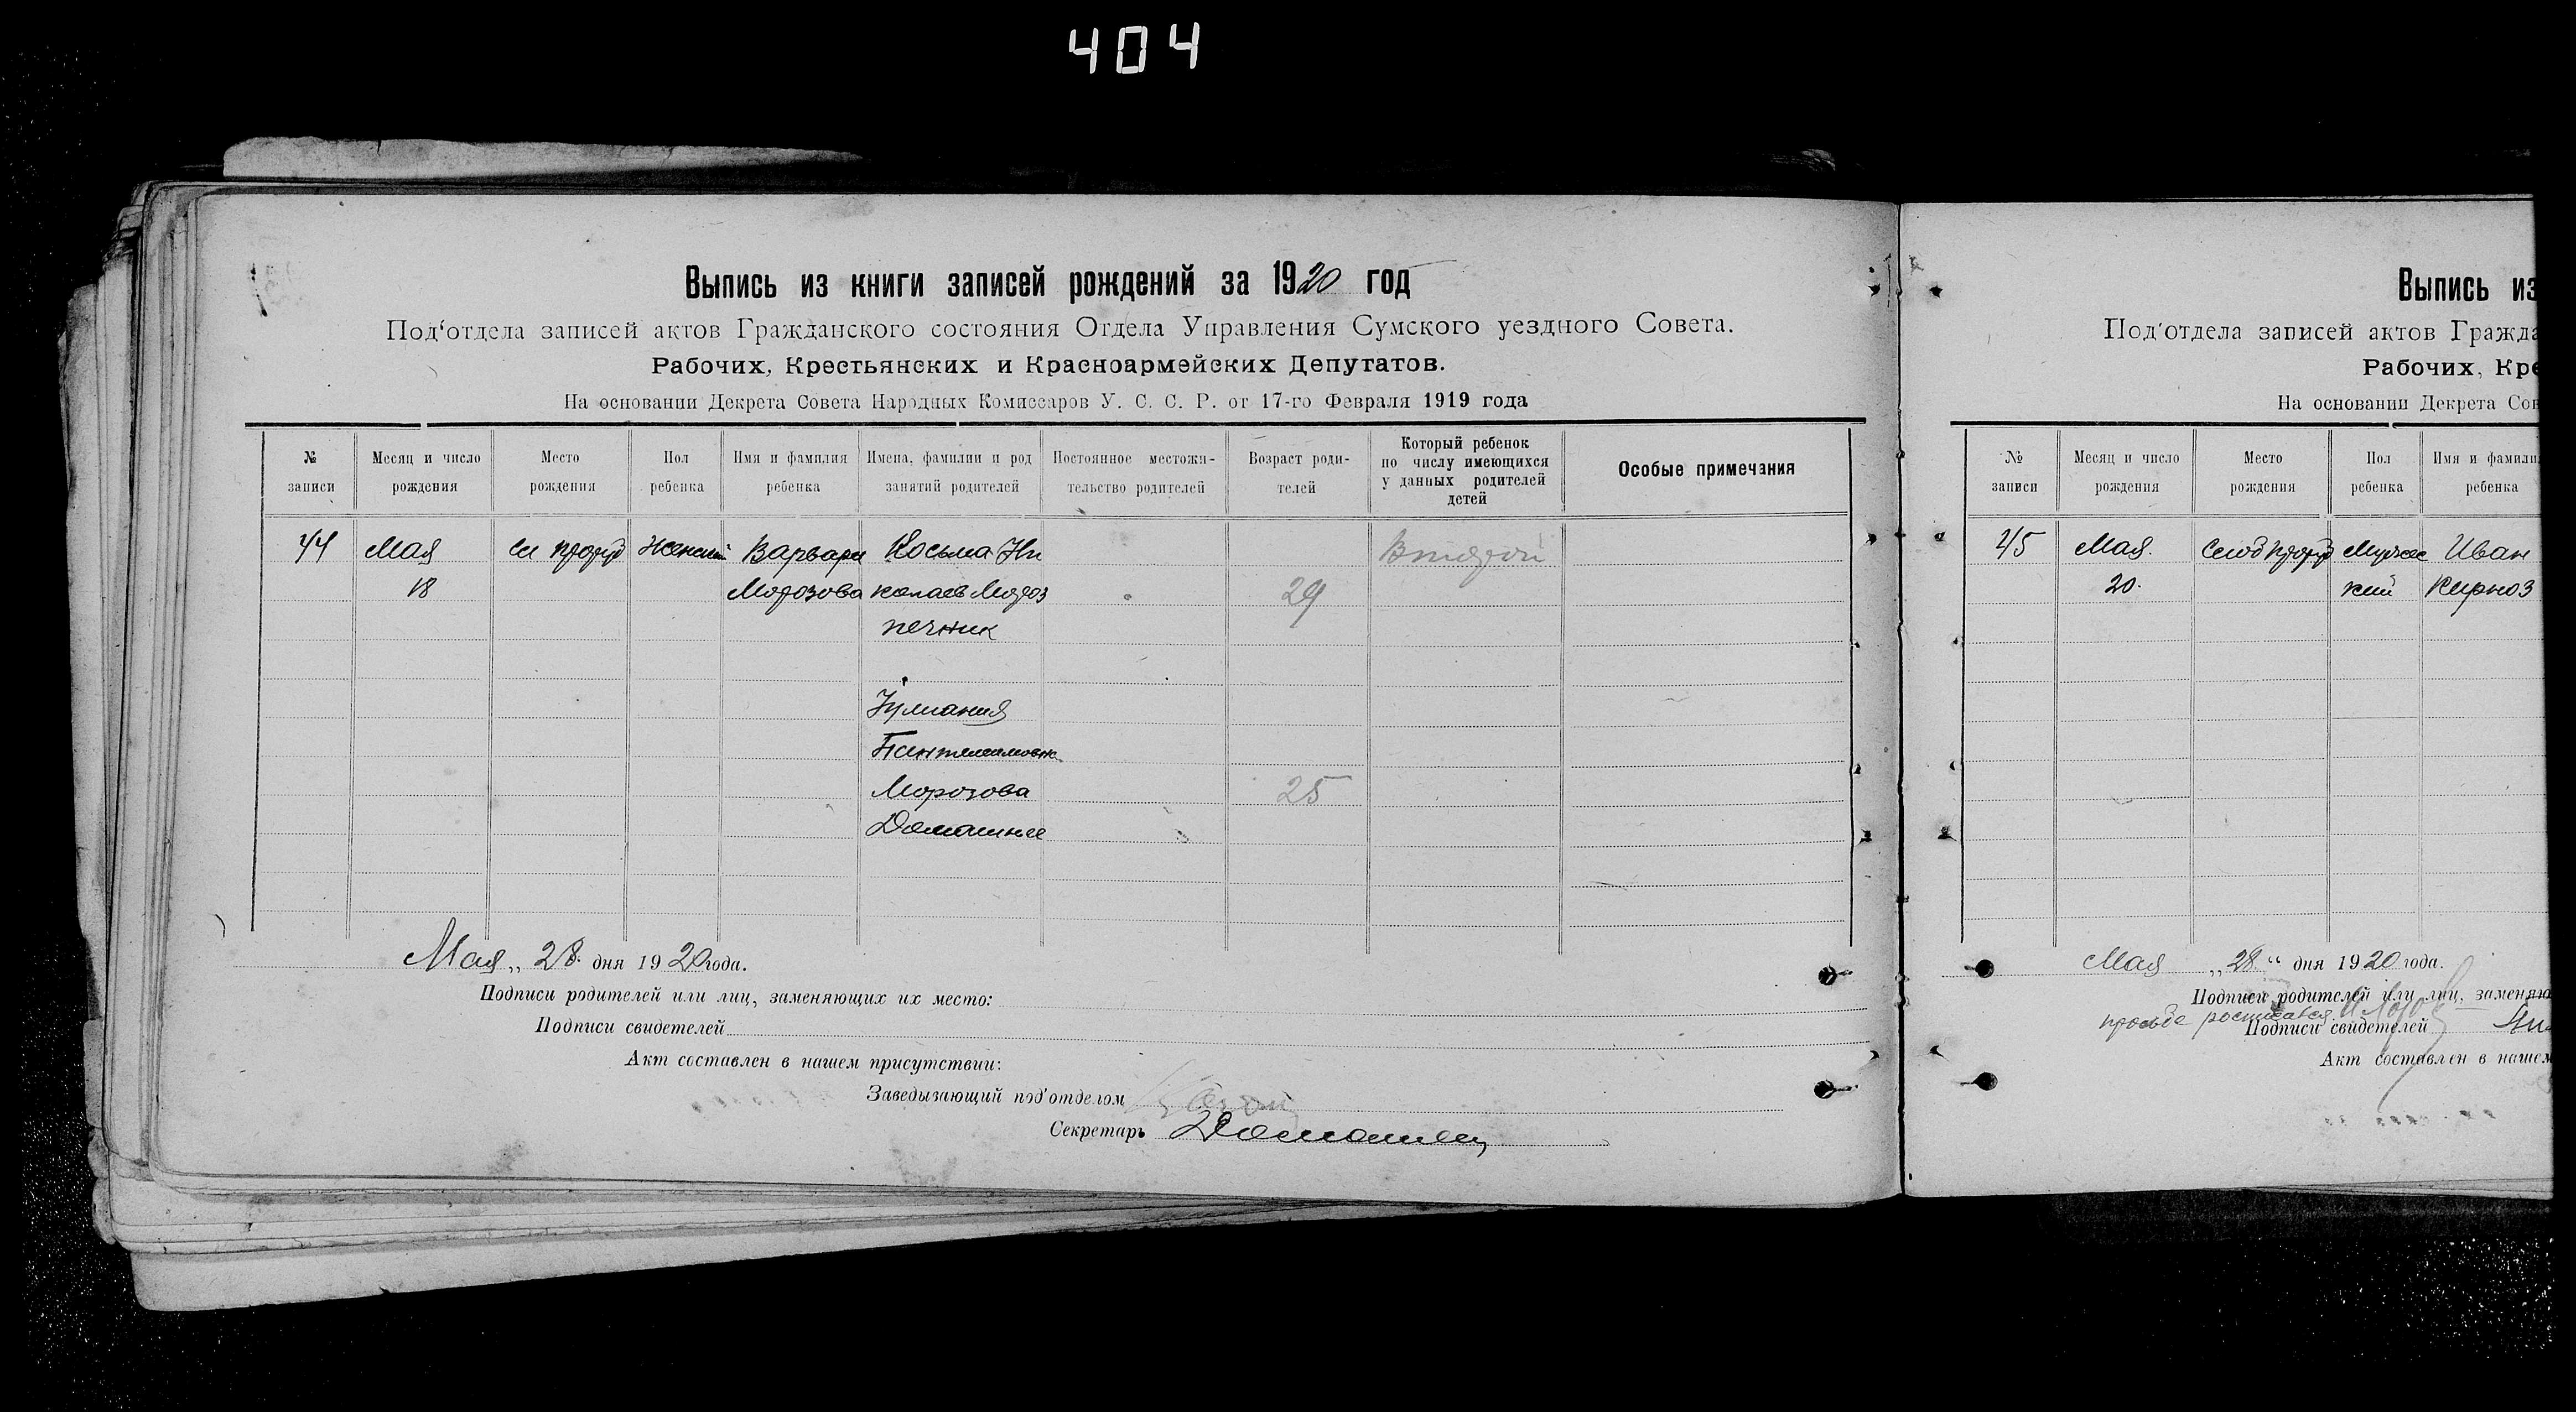 404
Выпись из книги записей рождений за 1920 год
Под‘отдела записей актов Гражданского состояния Отдела Управления Сумского уездного Совета.
Рабочих, Крестьянских и Красноармейских Депутатов.
На основании Декрета Совета Народных Комиссаров У. С. С. Р. от 17-го Февраля 1919 года
№ записи
Месяц и число рождения
Место рождения
Пол ребенка
Имя и фамилия ребенка
Имена, фамилии и род занятий родителей
Постоянное местожительство родителей
Возраст родителей
Который ребенок по числу имеющихся у данных родителей детей
Особые примечания
44 Мая Женский Варвара Косьма Ни Второй
18 Морозова колаев Мороз 29
печник
Иулиания
Морозова 25
Домашнее
Мая „ 28 дня 1920 года.
Подписи родителей или лиц, заменяющих их место:
Подписи свидетелей
Акт составлен в нашем присутствии:
Заведывающий под‘отделом
Секретарь
Выпись из
Под‘отдела записей актов Гражда
Рабочих, Кре
На основании Декрета Сов
№ записи
Месяц и число рождения
Место рождения
Пол ребенка
Имя и фамилия ребенка
45 Мая. Мужес Иван
20. кий
Мая „28“ дня 1920 года.
Подписи родителей или лиц, заменяю
просьбе
Подписи свидетелей
Акт составлен в нашем